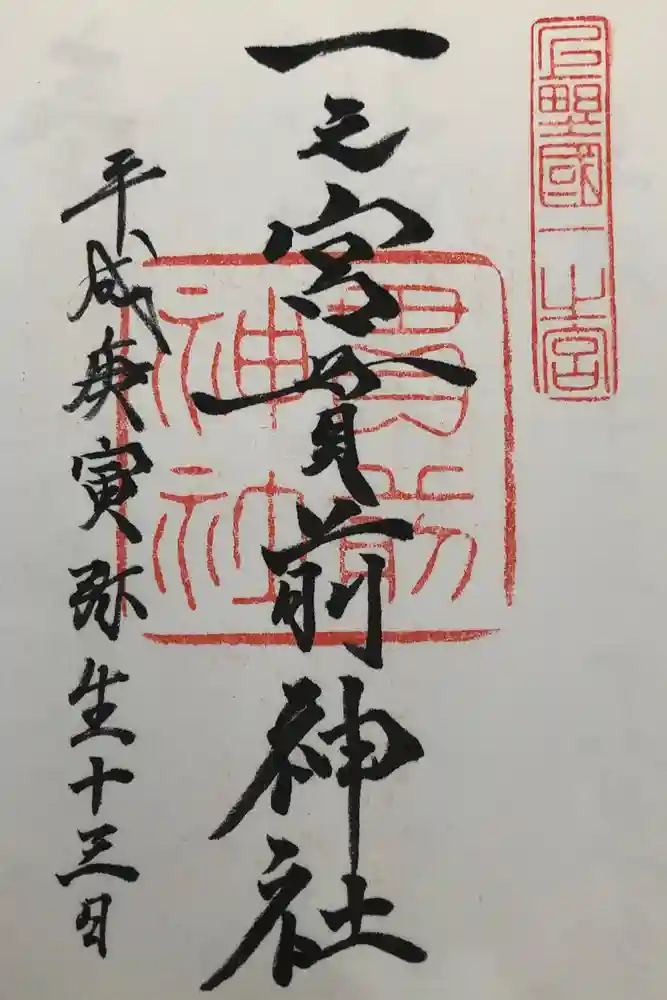 上野國一之宮
一之宮貫前神社
貫前
神社
平成庚寅弥生十三日